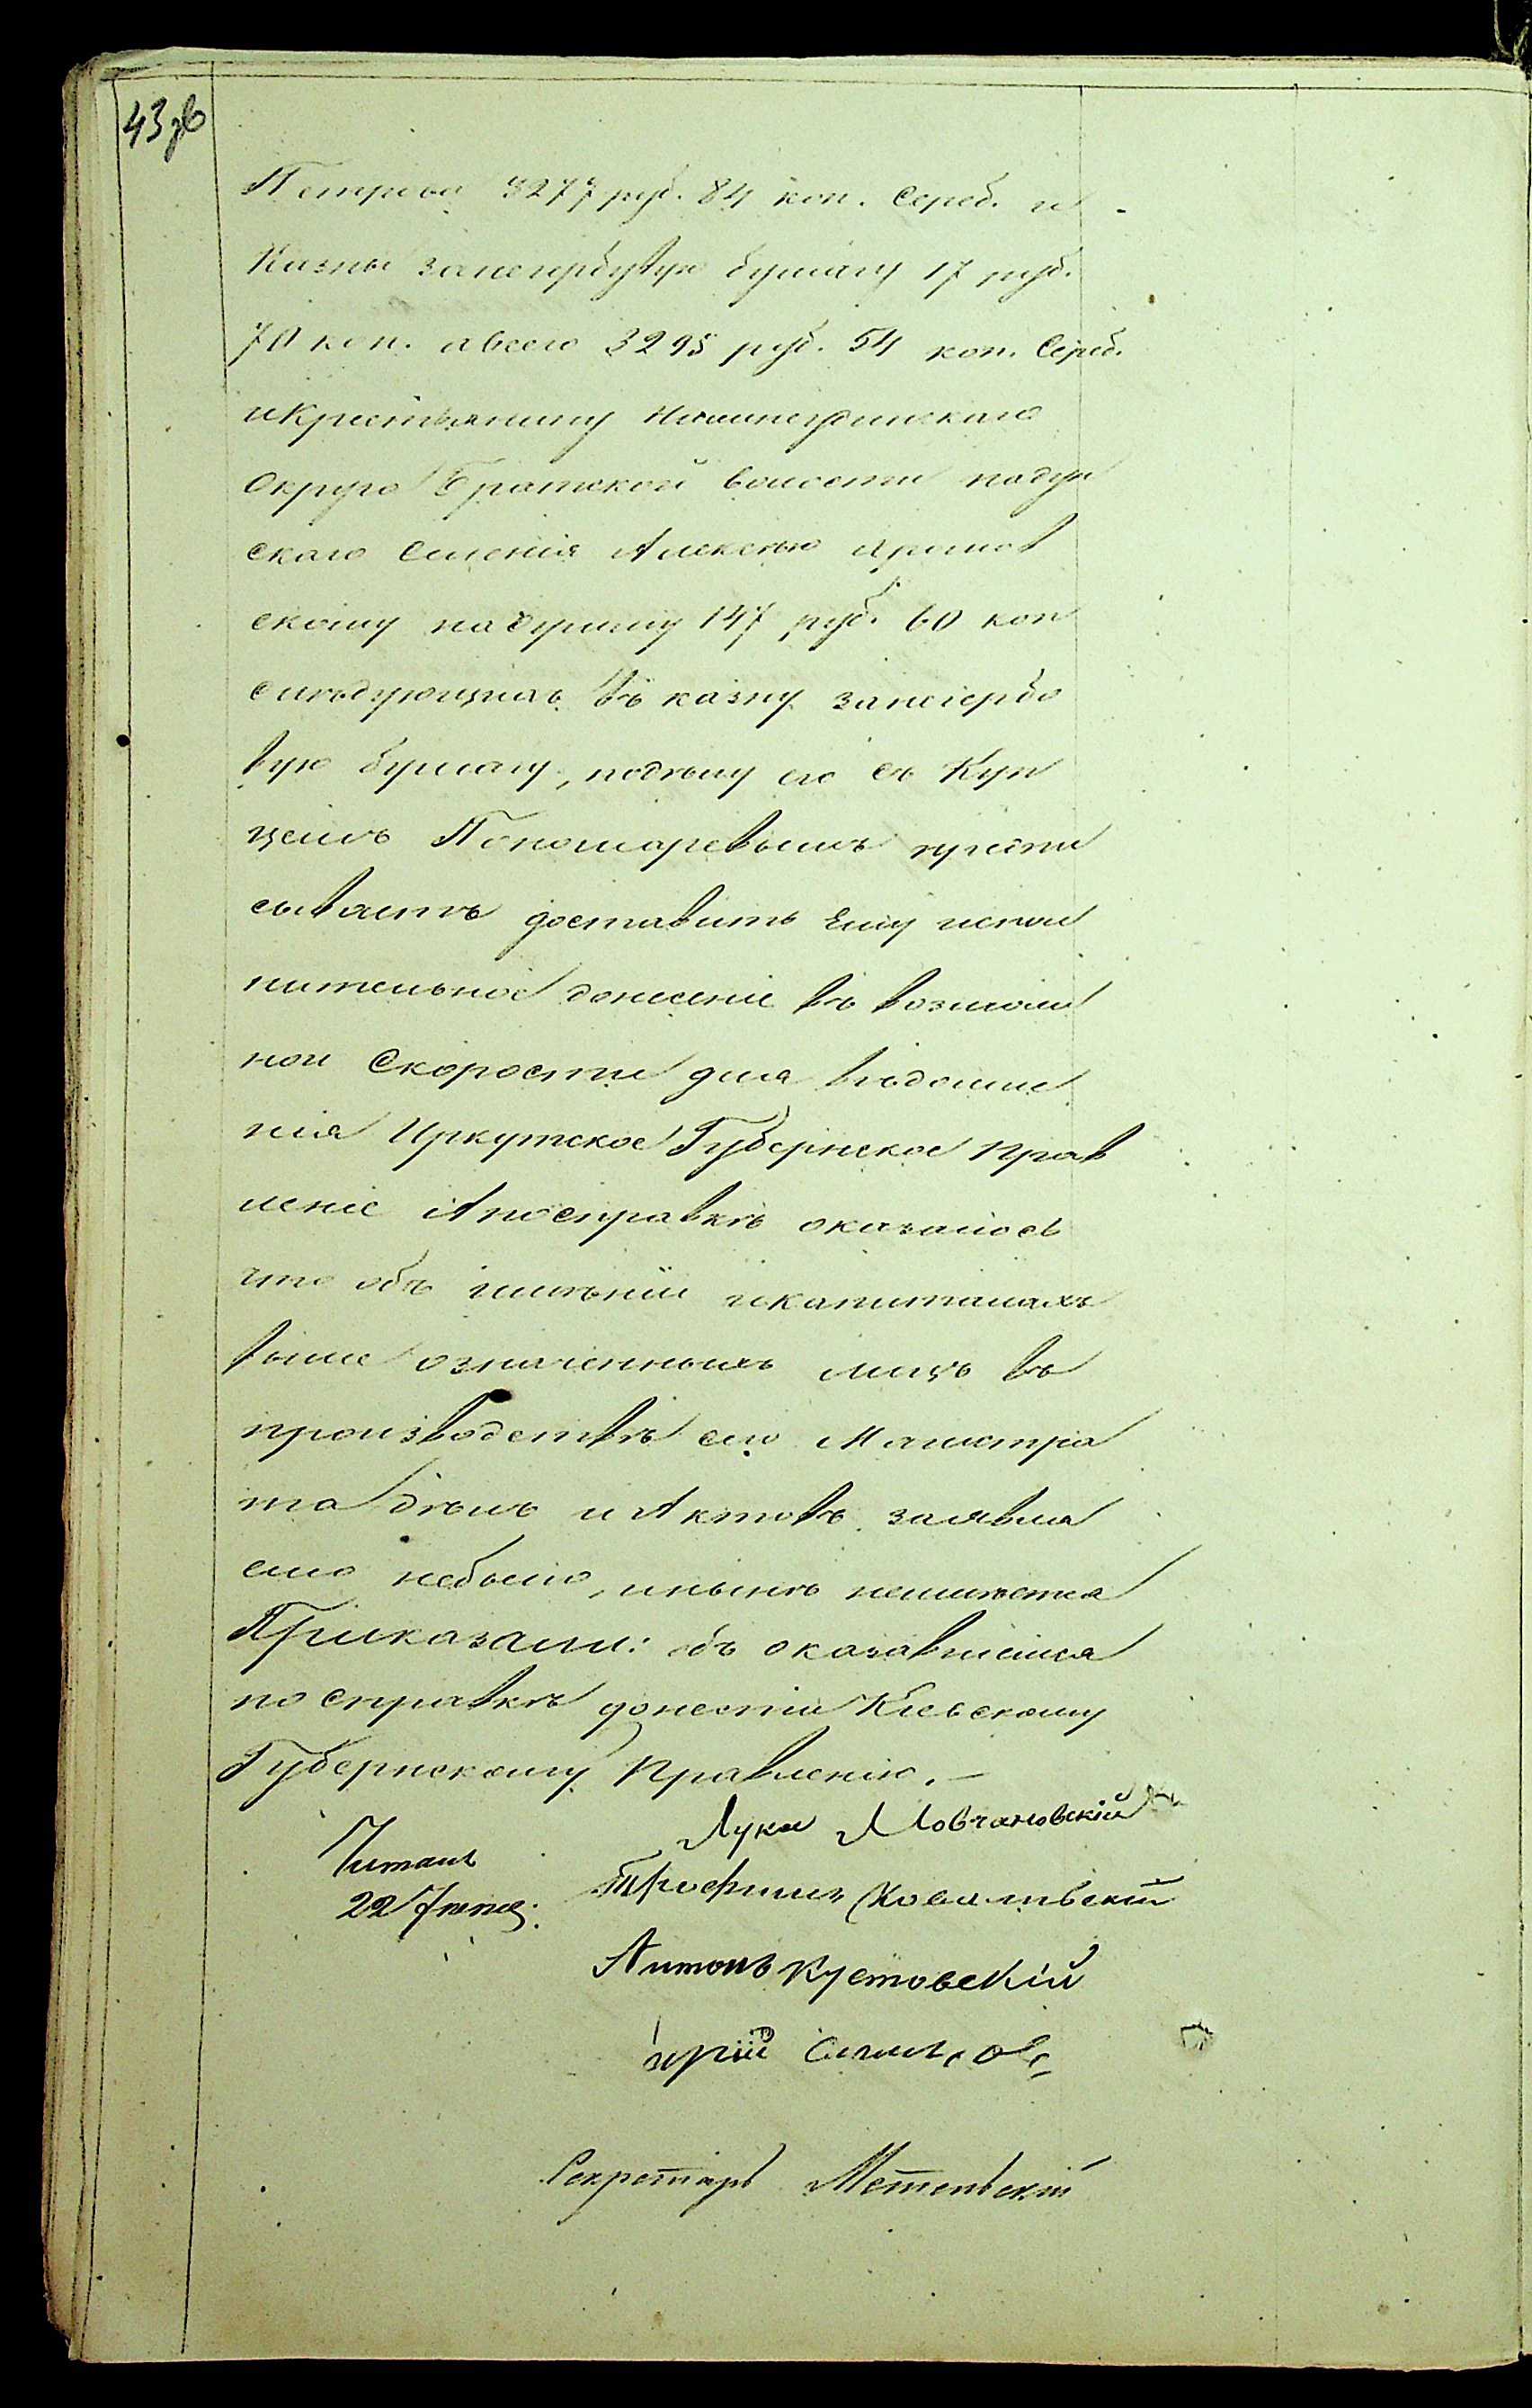 43 зв
Петрова 3277 руб. 84 коп. Сереб. и
Казны загербовую бумагу 17 руб.
70 коп. авсего 3295 руб. 54 коп. Сереб.
икрестьянину Нижнеудинскаго
Округа Братской волости падун
скаго Селенія Алексѣю
скому 147 руб. 60 коп
слѣдующихъ въ казну загербо
вую бумагу, подѣлу его съ Куп
цемъ Пономаревымъ предпи
сываетъ доставить Ему испол
нительное донесеніе въ возмож
ной Скорости для вѣдоми
нія Иркутское Губернское Прав
леніе Апосправкѣ оказалось
что объ имѣніи икапиталахъ
выше означенныхъ лицъ въ
производствѣ сего Магистра
та дѣлъ и Актовъ заявля
емо небыло, инынѣ неимѣется
Приказали: объ оказавшемся
по справкѣ донести Кіевскому
Губернскому Правленію. —
Лука Мовчановскій
Читалъ
Трофимъ Ковалевскій
22
Антонъ Кустовскій
Секретарь